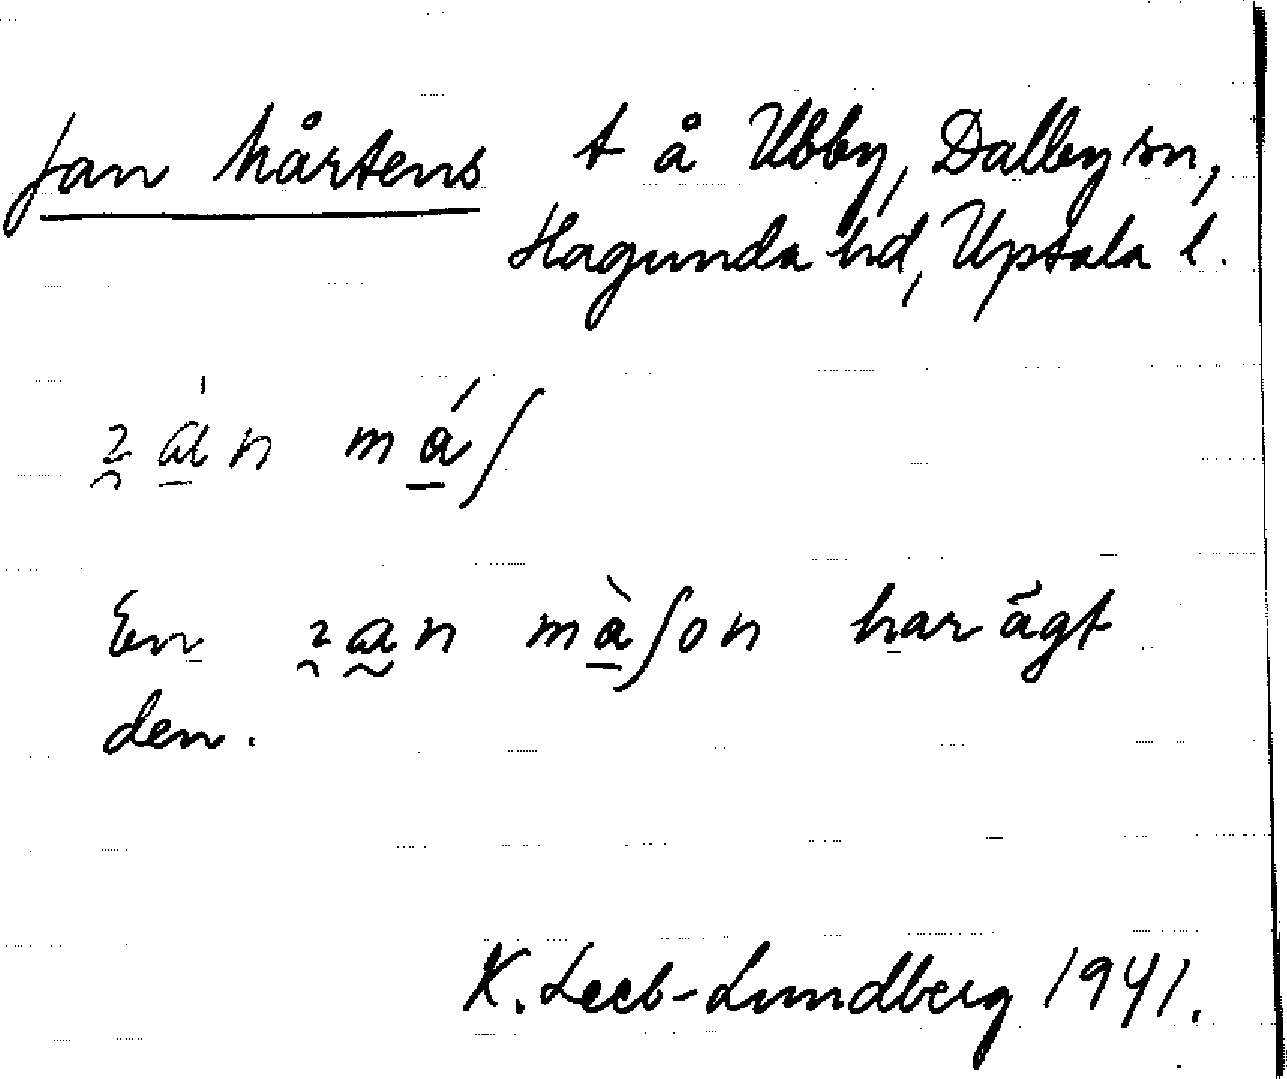 Jan Mårtens t å Ubby, Dalby sn,
Hagunda hd, Uppsala l.
En har ägt
den.
K. Leeb-Lundberg 1941.